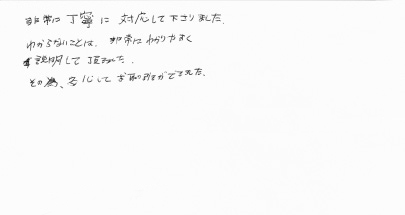 非常に丁寧に対応して下さりました。
わからないことは、非常にわかりやすく
説明して頂きました。
その為、安心してお取引ができました。